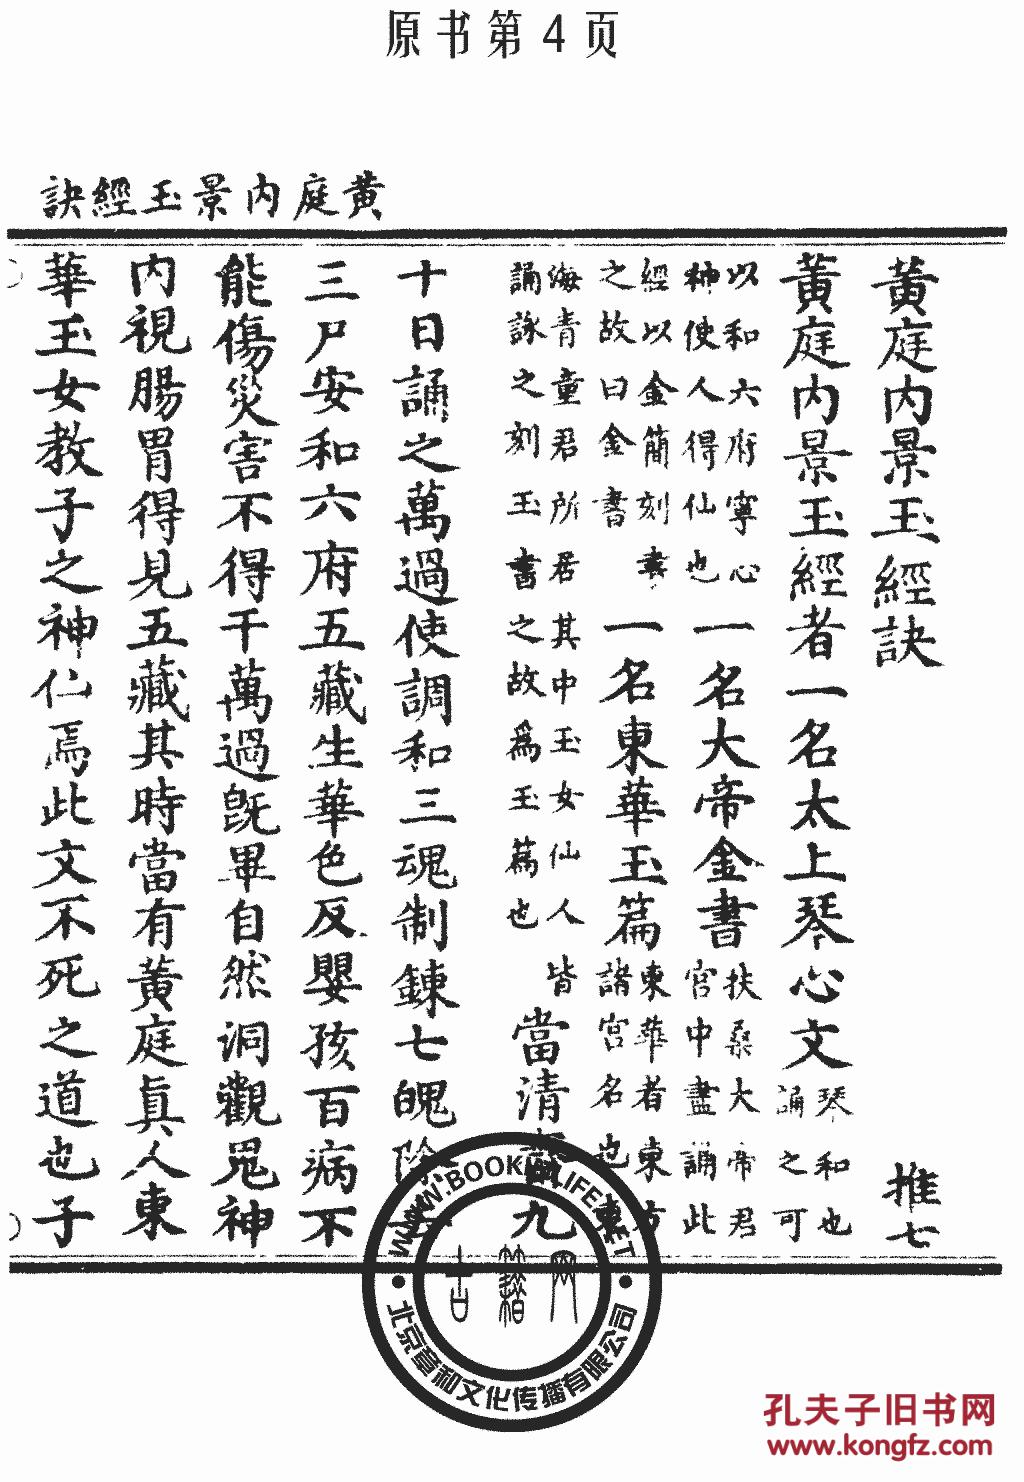 原书第4页
黄庭内景玉經訣
黃庭内景玉經訣 推七
黃庭内景玉經者一名太上琴心文琴和也誦之可
以和六府寧心神使人得仙也一名大帝金書扶桑大帝君官中盡誦此
經以金簡刻書之故曰金書一名東華玉篇東華者東方諸宫名也東
海青童君所居其中玉女仙人皆誦詠之刻玉書之故爲玉篇也當清九
十日誦之萬過使調和三魂制鍊七魄除
三尸安和六府五藏生華色反嬰孩百病不
能傷災害不得干萬過既畢自然洞觀鬼神
内視腸胃得見五藏其時當有黃庭眞人東
華玉女教子之神仁焉此文不死之道也子
古籍网
北京章和文化传播有限公司
孔夫子旧书网
www.kongfz.com